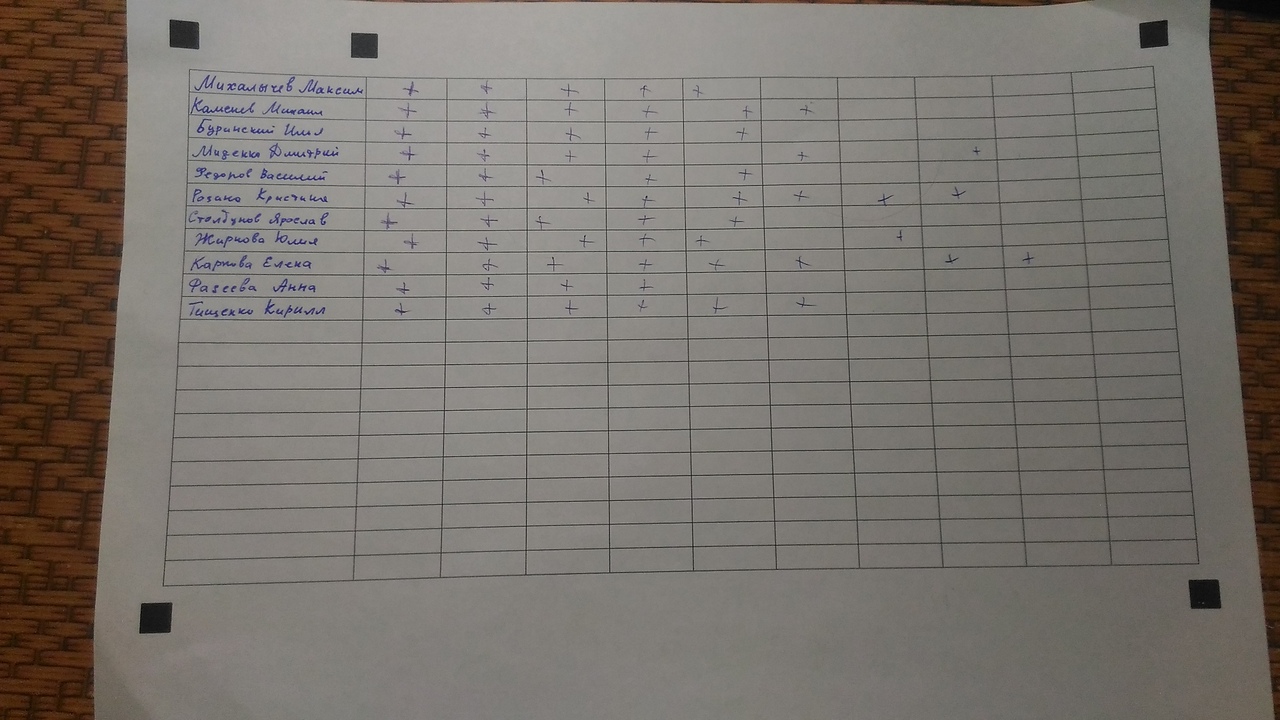 Михалычев Максим + + + + +
Каменев Михаил + + + + + +
Буринский Илия + + + + +
Миденко Дмитрий + + + + + +
Федоров Василий + + + + +
Розано Кристина + + + + + + + +
Столбунов Ярослав + + + + +
Жирнова Юлия + + + + + +
Карпова Елена + + + + + + + +
Фадеева Анна + + + +
Тищенко Кирилл + + + + + +